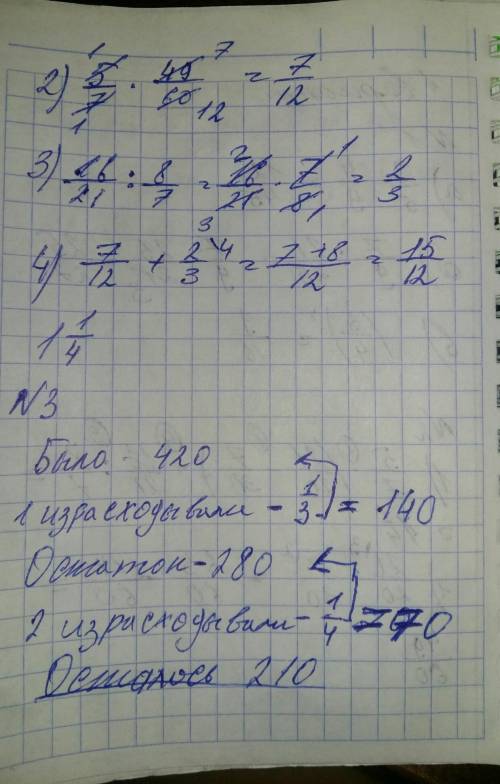 2) 5/7 · 49/60 = 7/12
3) 16/21 : 8/7 = 16/21 · 7/8 = 2/3
4) 7/12 + 2/3 = 7+8/12 = 15/12
1 1/4
N3
Было - 420
1 израсходывали - 1/3 = 140
Остаток - 280
2 израсходывали - 1/4 = 70
Осталось 210